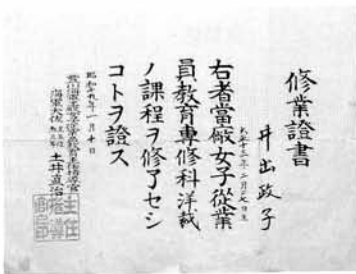 修業證書
井出政子
大正十三年二月七日生
右者當廠女子從業
員教育專修科洋裁
ノ課程ヲ修了セシ
コトヲ證ス
昭和十九年一月十日
海軍大佐 土井直治